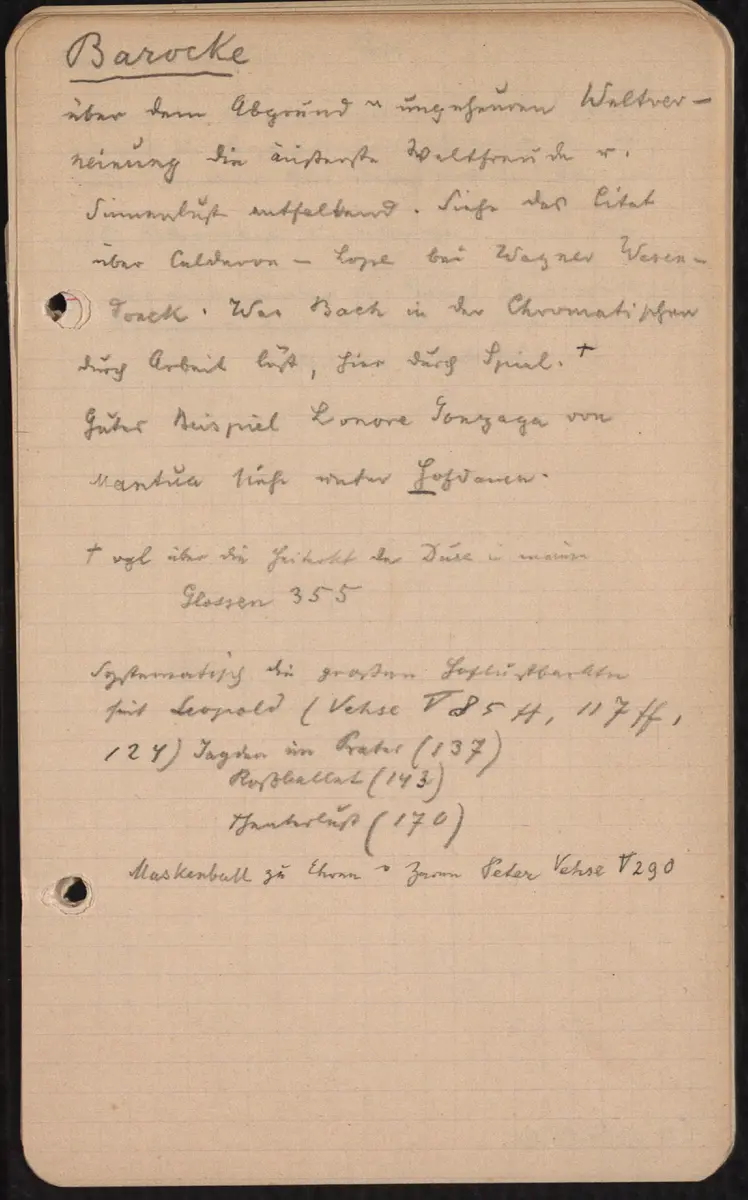 Barocke
über dem Abgrund u ungeheuren Weltver-
neinung die äußerste Weltfreude u.
Sinnenlust entfaltend. Siehe das Citat
über Calderon – Lope bei Wagner Wesen-
donck. Was Bach in der Chromatischen
durch Arbeit löst, hier durch Spiel. †
Gutes Beispiel Lonore Gonzaga von
Mantua siehe unter Hofdamen.
† vgl über die Heiterkt der Duse in meinen
Glossen 355
Systematisch die großen Hoflustbarktn
seit Leopold (Vehse V 85 ff, 117 ff,
124) Jagden im Prater (137)
Roßballet (143)
Theaterlust (170)
Maskenball zu Ehren v Zaren Peter Vehse V 290